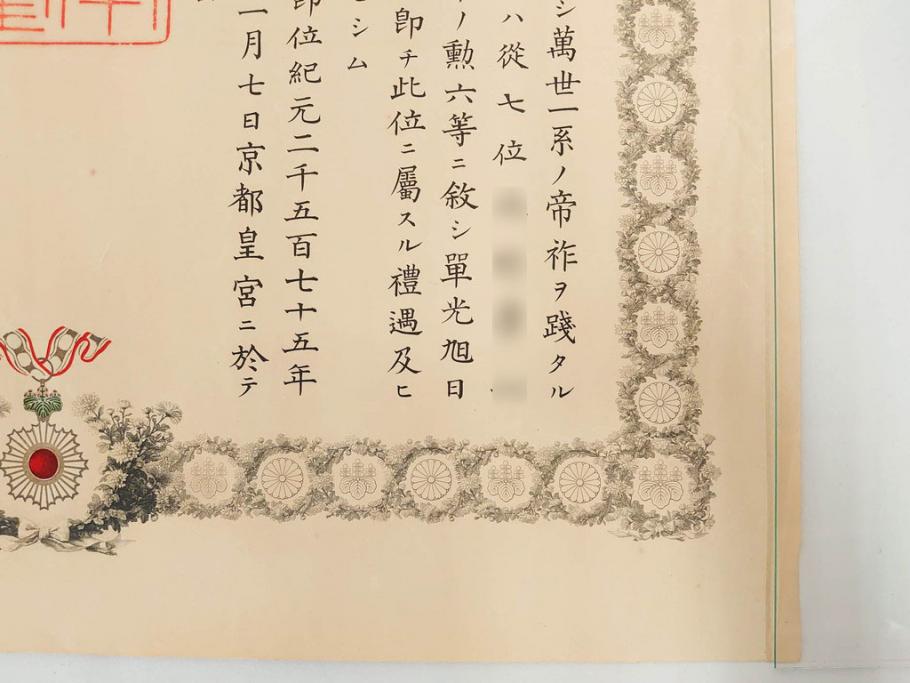 シ萬世一系ノ帝祚ヲ踐タル
ハ從七位
ノ勳六等ニ敘シ單光旭日
卽チ此位ニ屬スル禮遇及ヒ
シム
卽位紀元二千五百七十五年
一月七日京都皇宮ニ於テ